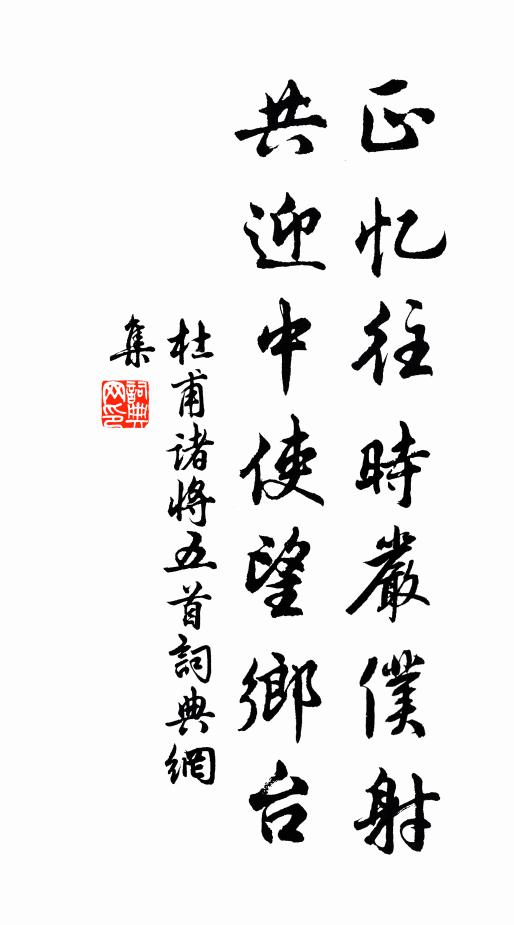 正忆往時嚴僕射
共迎中使望鄉台
杜甫諸將五首詞典網
集
詞典网印